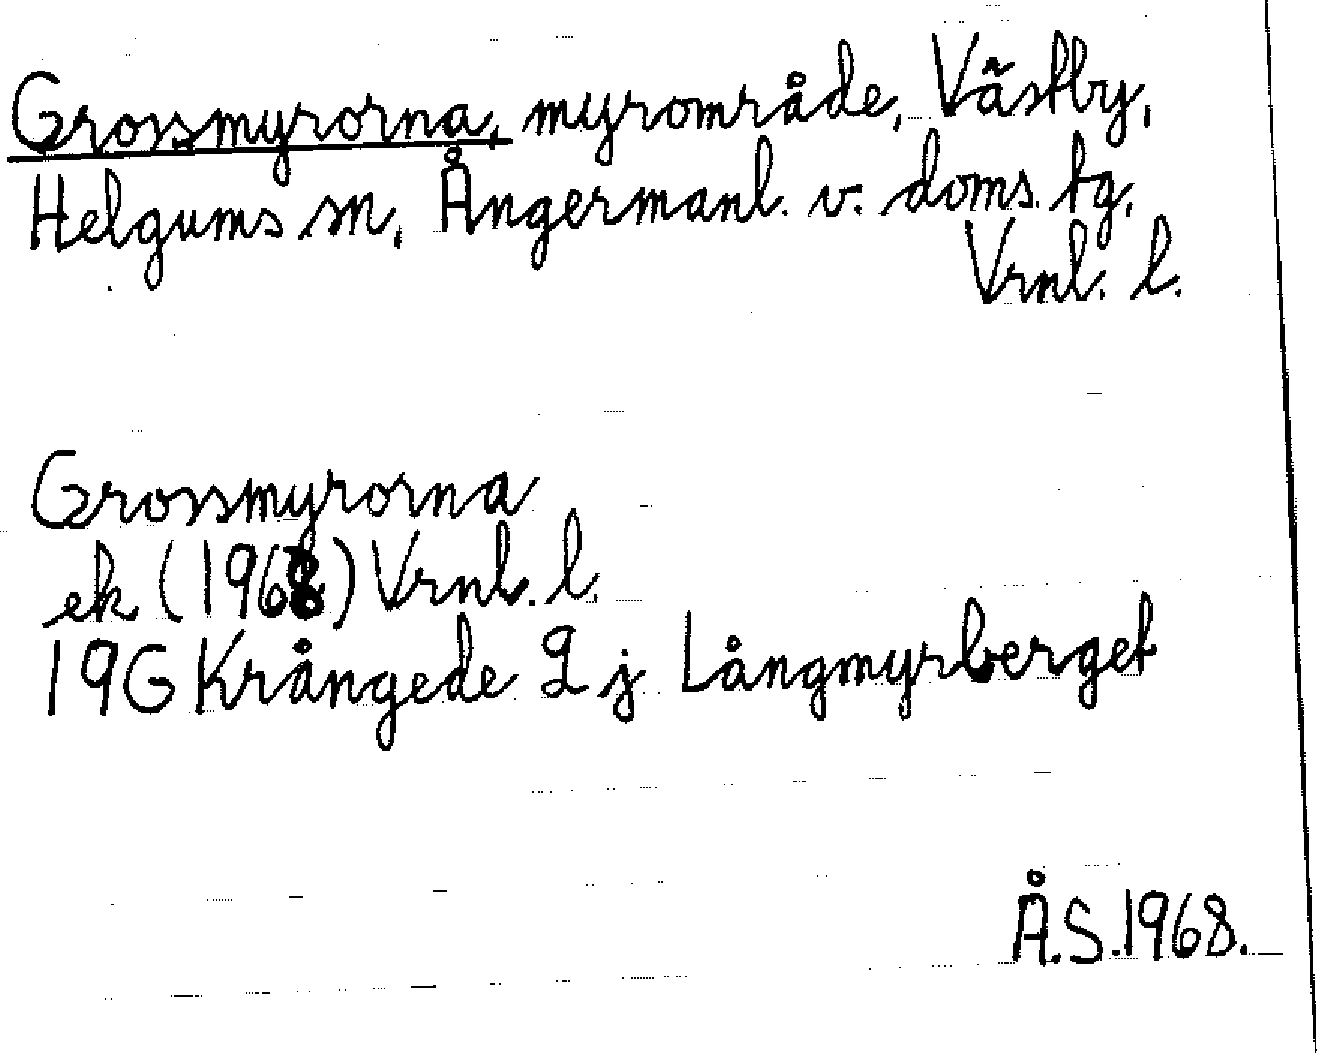 Grossmyrorna, myrområde, Västby,
Helgums sn, Ångermanl. v. doms. tg.
Vrnl. l.
Grossmyrorna
ek (1968) Vrnl. l.
19G Krångede 2 j Långmyrberget
Å.S.1968.